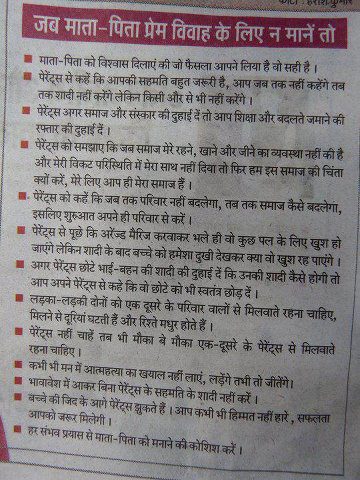 फोटो : हरीश कुमार
जब माता-पिता प्रेम विवाह के लिए न मानें तो
माता-पिता को विश्वास दिलाएं की जो फैसला आपने लिया है वो सही है ।
पेरेंट्स से कहें कि आपकी सहमति बहुत जरूरी है, आप जब तक नहीं कहेंगे तब
तक शादी नहीं करेंगे लेकिन किसी और से भी नहीं करेंगे ।
पेरेंट्स अगर समाज और संस्कार की दुहाई दें तो आप शिक्षा और बदलते जमाने की
रफ्तार की दुहाई दें ।
पेरेंट्स को समझाएं कि जब समाज मेरे रहने, खाने और जीने का व्यवस्था नहीं की है
और मेरी विकट परिस्थिति में मेरा साथ नहीं दिया तो फिर हम इस समाज की चिंता
क्यों करें, मेरे लिए आप ही मेरा समाज हैं ।
पेरेंट्स को कहें कि जब तक परिवार नहीं बदलेगा, तब तक समाज कैसे बदलेगा,
इसलिए शुरुआत अपने ही परिवार से करें ।
पेरेंट्स से पूछे कि अरेंज्ड मैरिज करवाकर भले ही वो कुछ पल के लिए खुश हो
जाएंगे लेकिन शादी के बाद बच्चे को हमेशा दुखी देखकर क्या वो खुश रह पाएंगे ।
अगर पेरेंट्स छोटे भाई-बहन की शादी की दुहाई दें कि उनकी शादी कैसे होगी तो
आप अपने पेरेंट्स से कहे कि वो छोटे को भी स्वतंत्र छोड़ दें ।
लड़का-लड़की दोनों को एक दूसरे के परिवार वालों से मिलवाते रहना चाहिए,
मिलने से दूरियां घटती हैं और रिश्ते मधुर होते हैं ।
पेरेंट्स नहीं चाहें तब भी मौका बे मौका एक-दूसरे के पेरेंट्स से मिलवाते
रहना चाहिए ।
कभी भी मन में आत्महत्या का खयाल नहीं लाएं, लड़ेंगे तभी तो जीतेंगे।
भावावेश में आकर बिना पेरेंट्स के सहमति के शादी नहीं करें ।
बच्चे की जिद के आगे पेरेंट्स झुकते हैं । आप कभी भी हिम्मत नहीं हारे , सफलता
आपको जरूर मिलेगी ।
हर संभव प्रयास से माता-पिता को मनाने की कोशिश करें ।